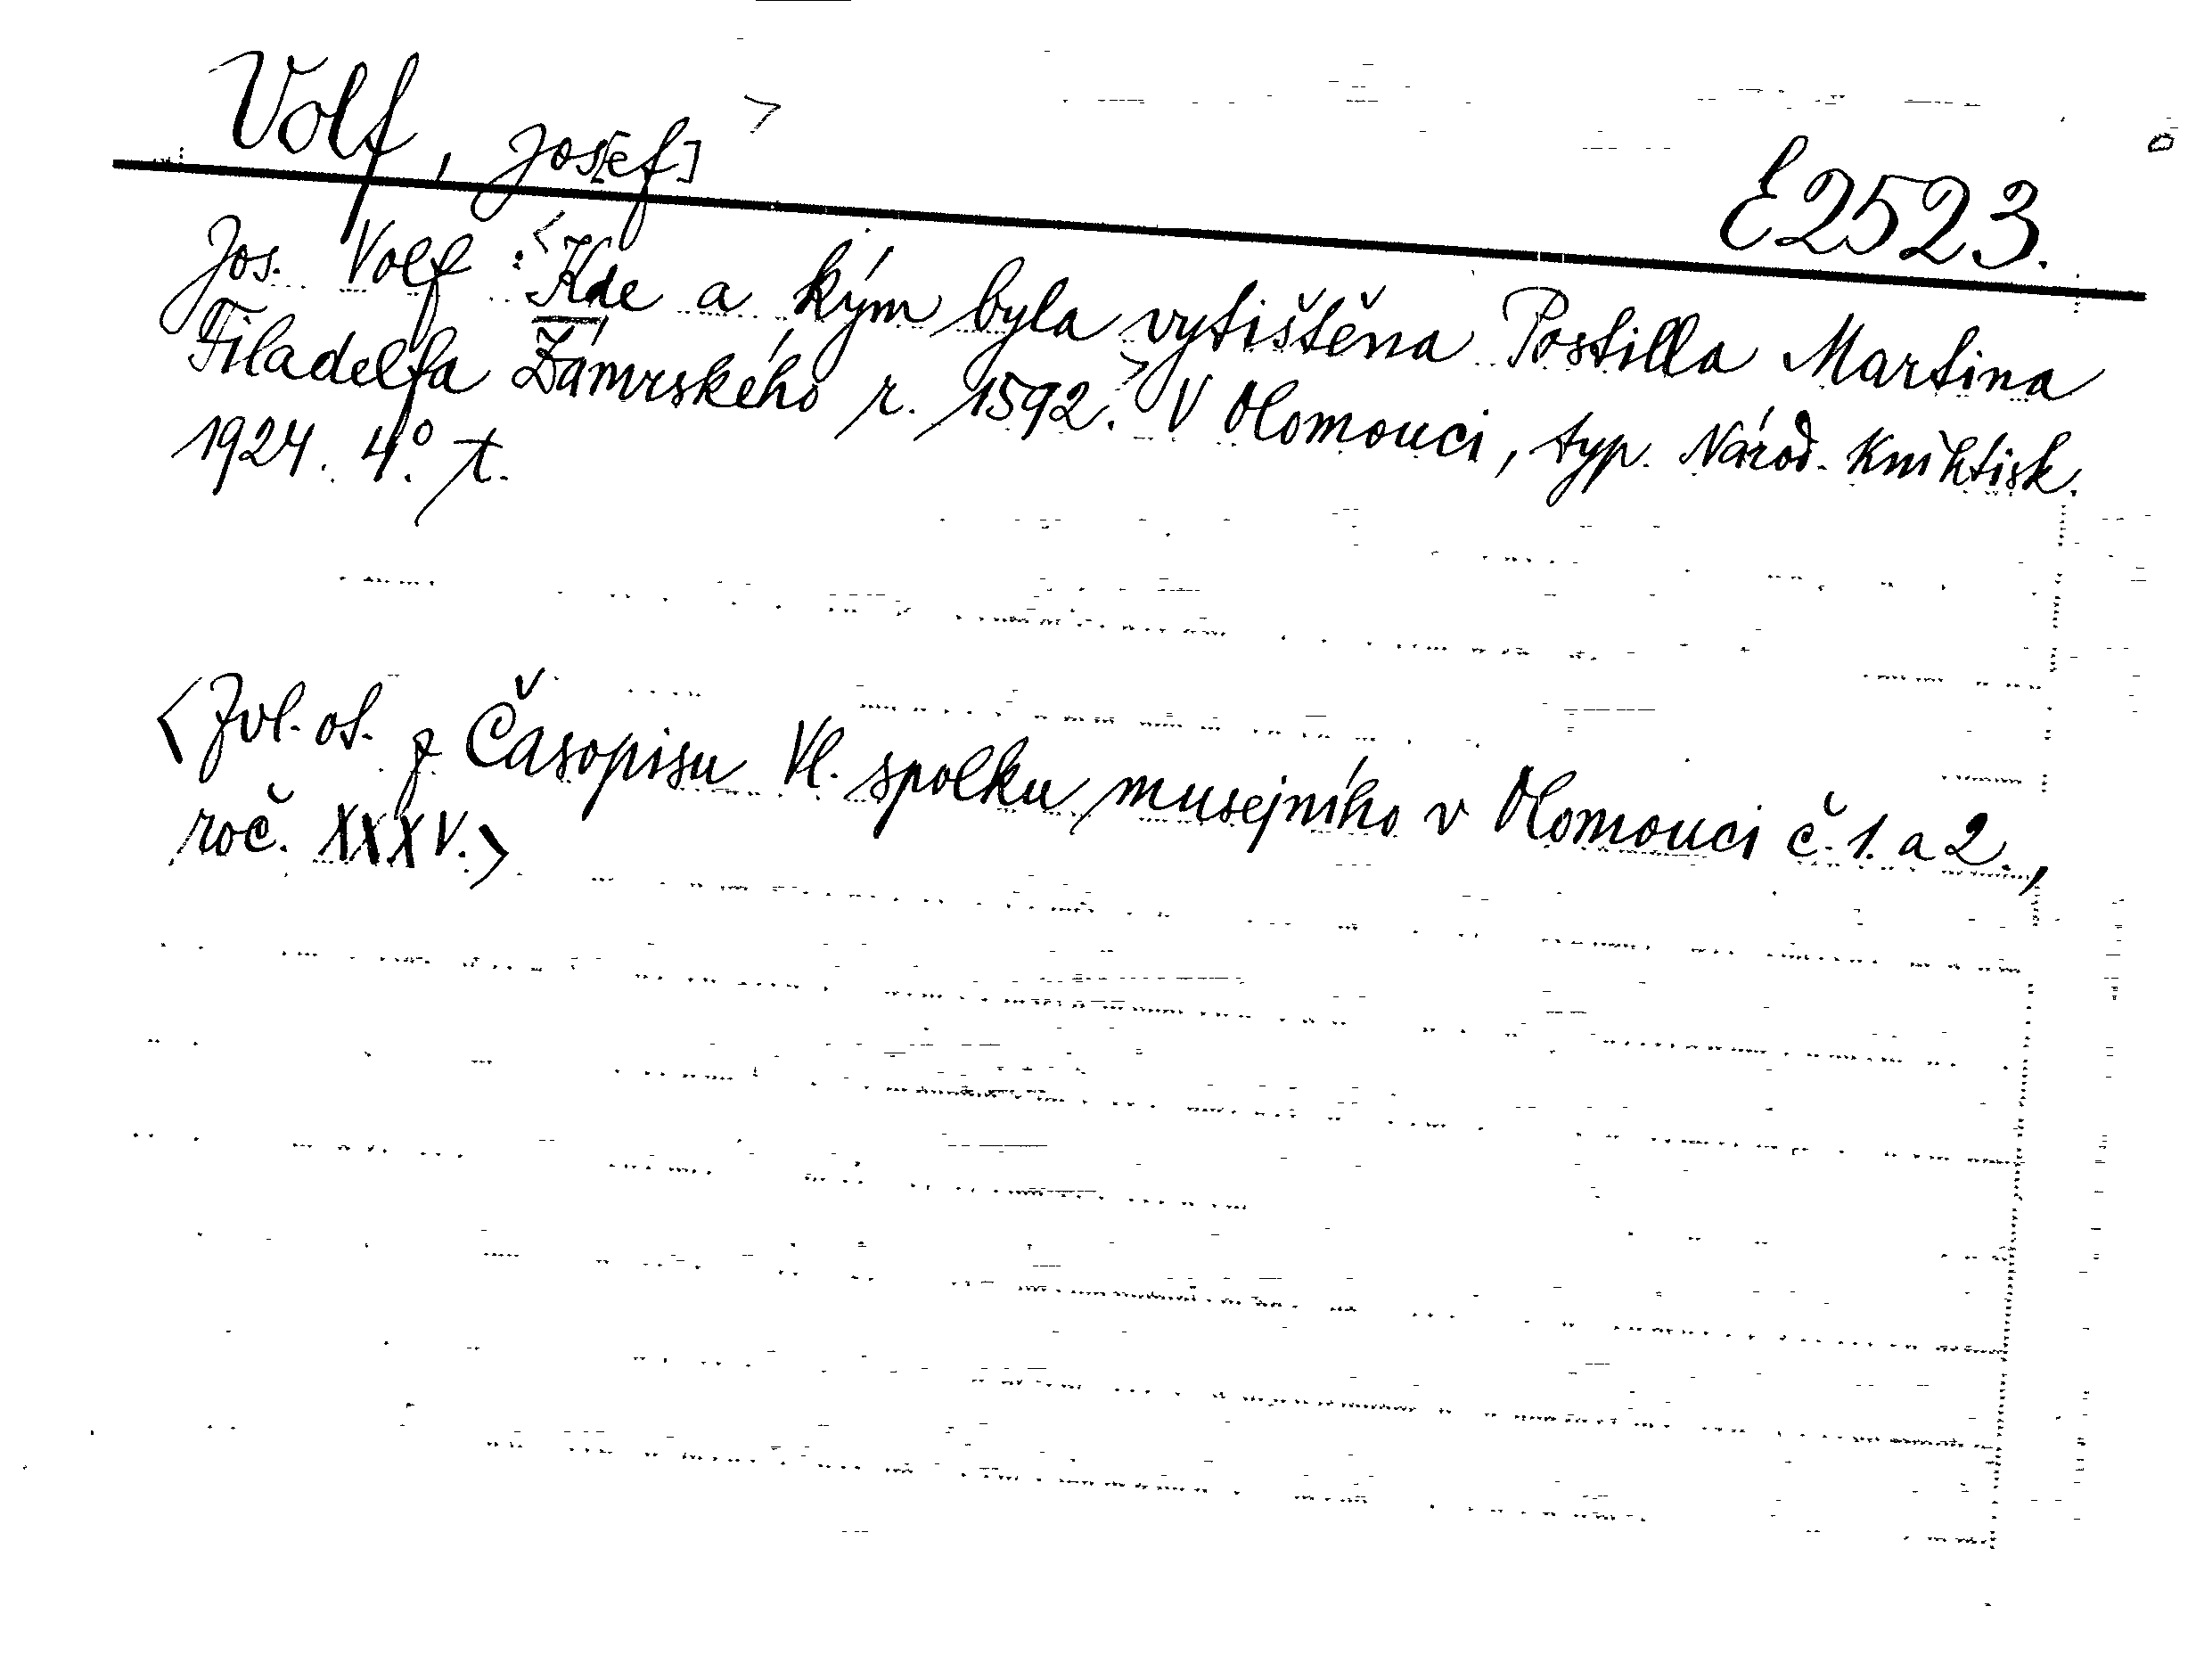 Volf, Jos[ef] >
E2523.
Jos. Volf: <Kde a kým byla vytištěna Postilla Martina
Filadelfa Zámrského r. 1592.> V Olomouci, typ. Národ. Knihtisk.
1924. 4.° t.
<Zvl. ot. z Časopisu Vl. spolku musejního v Olomouci č. 1. a 2.,
roč. XXXV.>